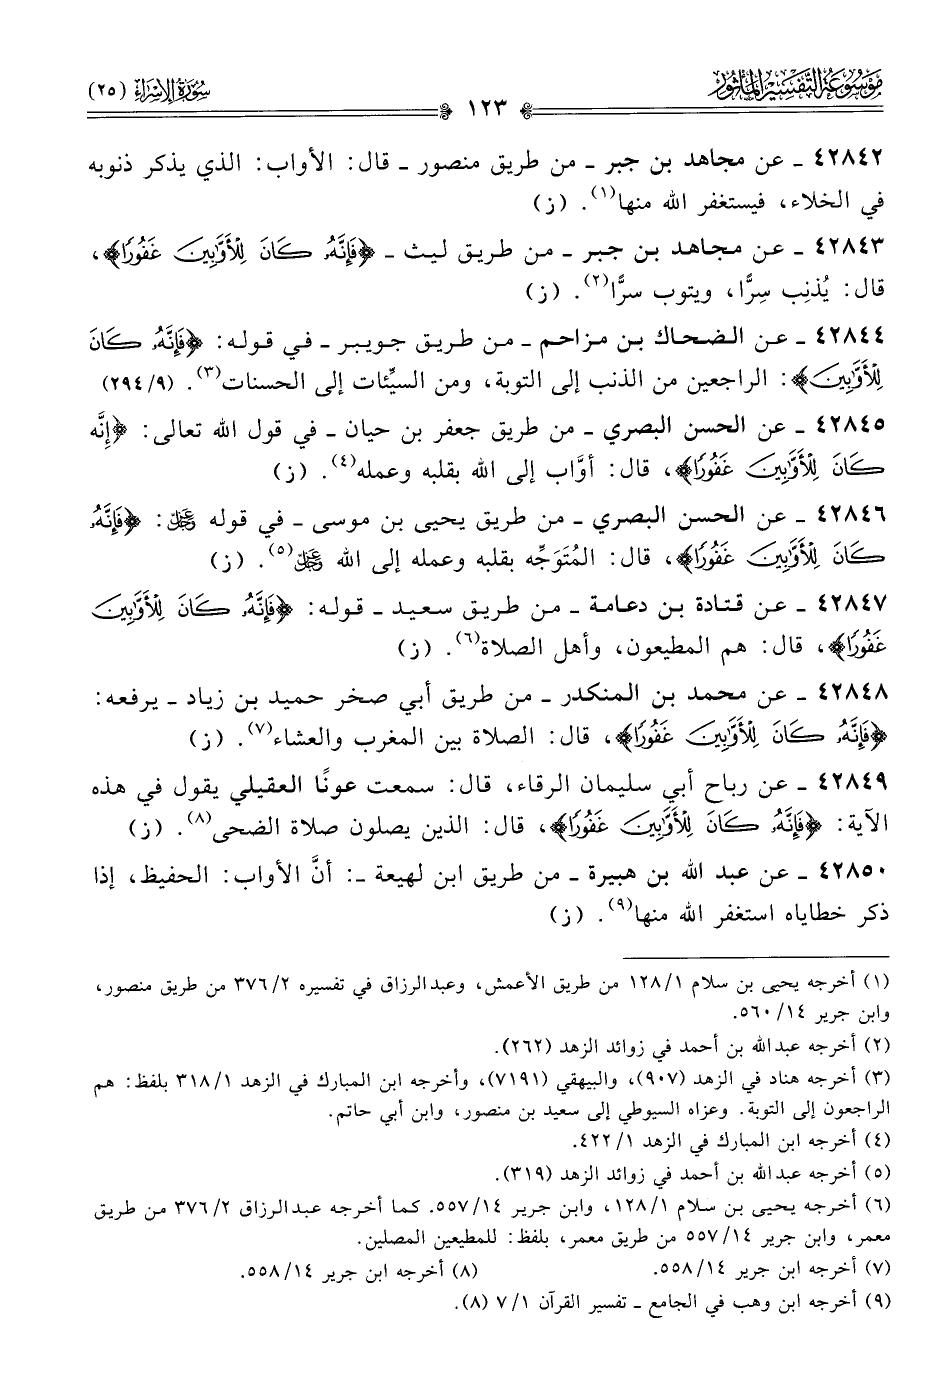 موسوعة التفسير المأثور
١٢٣
سورة الإسراء (٢٥)
٤٢٨٤٢ ـ عن مجاهد بن جبر ـ من طريق منصور ـ قال: الأواب: الذي يذكر ذنوبه
في الخلاء، فيستغفر الله منها(١). (ز)
٤٢٨٤٣ ـ عن مجاهد بن جبر ـ من طريق ليث ـ ﴿فَإِنَّهُۥ كَانَ لِلْأَوَّٰبِينَ غَفُورًا﴾،
قال: يُذنِب سِرًّا، ويتوب سرًّا(٢). (ز)
٤٢٨٤٤ ـ عن الضحاك بن مزاحم ـ من طريق جويبر ـ في قوله: ﴿فَإِنَّهُۥ كَانَ
لِلْأَوَّٰبِينَ﴾: الراجعين من الذنب إلى التوبة، ومن السيِّئات إلى الحسنات(٣). (٢٩٤/٩)
٤٢٨٤٥ ـ عن الحسن البصري ـ من طريق جعفر بن حيان ـ في قول الله تعالى: ﴿إِنَّه
كَانَ لِلْأَوَّٰبِينَ غَفُورًا﴾، قال: أوَّاب إلى الله بقلبه وعمله(٤). (ز)
٤٢٨٤٦ ـ عن الحسن البصري ـ من طريق يحيى بن موسى ـ في قوله ﷿: ﴿فَإِنَّهُۥ
كَانَ لِلْأَوَّٰبِينَ غَفُورًا﴾، قال: المُتَوَجِّه بقلبه وعمله إلى الله ﷿(٥). (ز)
٤٢٨٤٧ ـ عن قتادة بن دعامة ـ من طريق سعيد ـ قوله: ﴿فَإِنَّهُۥ كَانَ لِلْأَوَّٰبِينَ
غَفُورًا﴾، قال: هم المطيعون، وأهل الصلاة(٦). (ز)
٤٢٨٤٨ ـ عن محمد بن المنكدر ـ من طريق أبي صخر حميد بن زياد ـ يرفعه:
﴿فَإِنَّهُۥ كَانَ لِلْأَوَّٰبِينَ غَفُورًا﴾، قال: الصلاة بين المغرب والعشاء(٧). (ز)
٤٢٨٤٩ ـ عن رباح أبي سليمان الرقاء، قال: سمعت عونًا العقيلي يقول في هذه
الآية: ﴿فَإِنَّهُۥ كَانَ لِلْأَوَّٰبِينَ غَفُورًا﴾، قال: الذين يصلون صلاة الضحى(٨). (ز)
٤٢٨٥٠ ـ عن عبد الله بن هبيرة ـ من طريق ابن لهيعة ـ: أنَّ الأواب: الحفيظ، إذا
ذكر خطاياه استغفر الله منها(٩). (ز)
(١) أخرجه يحيى بن سلام ١٢٨/١ من طريق الأعمش، وعبدالرزاق في تفسيره ٣٧٦/٢ من طريق منصور،
وابن جرير ٥٦٠/١٤.
(٢) أخرجه عبدالله بن أحمد في زوائد الزهد (٢٦٢).
(٣) أخرجه هناد في الزهد (٩٠٧)، والبيهقي (٧١٩١)، وأخرجه ابن المبارك في الزهد ٣١٨/١ بلفظ: هم
الراجعون إلى التوبة. وعزاه السيوطي إلى سعيد بن منصور، وابن أبي حاتم.
(٤) أخرجه ابن المبارك في الزهد ٤٢٢/١.
(٥) أخرجه عبدالله بن أحمد في زوائد الزهد (٣١٩).
(٦) أخرجه يحيى بن سلام ١٢٨/١، وابن جرير ٥٥٧/١٤. كما أخرجه عبدالرزاق ٣٧٦/٢ من طريق
معمر، وابن جرير ٥٥٧/١٤ من طريق معمر، بلفظ: للمطيعين المصلين.
(٧) أخرجه ابن جرير ٥٥٨/١٤. (٨) أخرجه ابن جرير ٥٥٨/١٤.
(٩) أخرجه ابن وهب في الجامع ـ تفسير القرآن ٧/١ (٨).